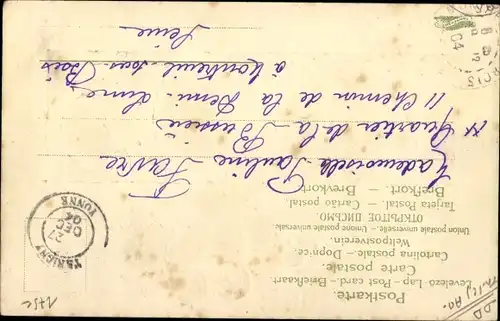 Postkarte.
Levelező-Lap - Post card - Briefkaart
Carte postale.
Cartolina postale - Dopisnice.
Weltpostverein.
Union postale universelle - Unione postale universale
ОТКРЫТОЕ ПИСЬМО.
Tarjeta Postal. - Cartão postal.
Brefkort. - Brevkort.
Mademoiselle Pauline
Favre
Quartier de la Boissière
11 Chemin de la Demi-Lune
à Montreuil-sous-Bois
Seine
27
DEC
04
YONNE
04